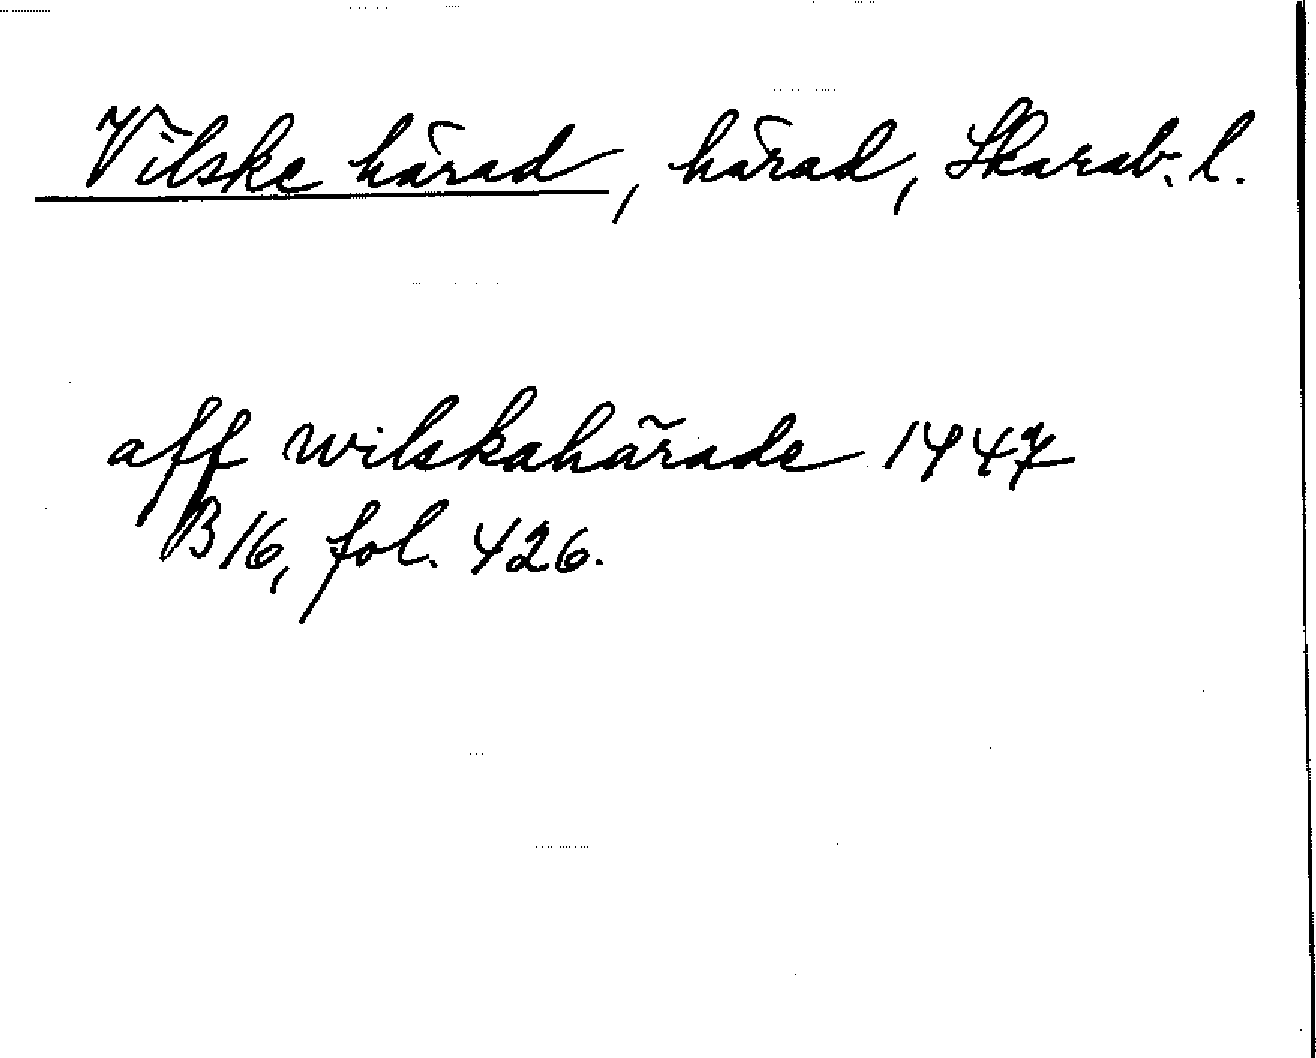 Vilske härad, härad, Skarab. l.
aff wilskahärade 1447
B 16, fol. 426.